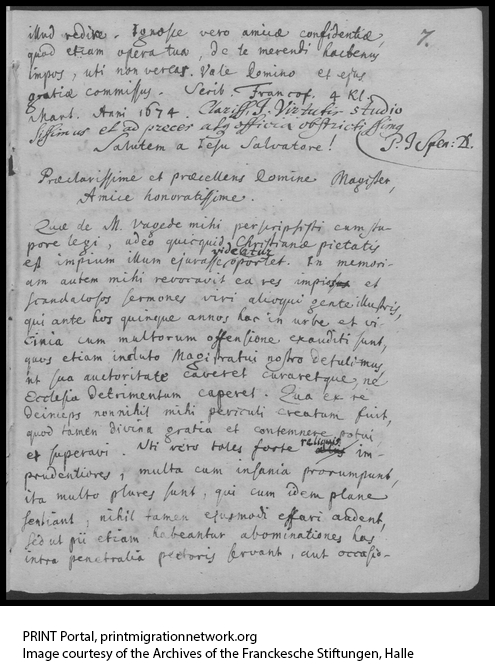 illud redire. Ignosce vero amicæ confidentiæ,
quod etiam opera tua, de te merendi hactenus
impos, uti non vereas. Vale Domino et ejus
gratiæ commissus. Scrib. Francof. 4 Kl.
Mart. Anni 1674. Clariss. T. Virtutis studio
sissimus et ad preces atq officia obstrictissimq
P. J. Spen: D.
7.
Salutem a Jesu Salvatore!
Præclarissime et præcellens Domine Magister,
Amice honoratissime.
Quæ de M. Vagede mihi perscripsisti cum stu-
pore legi, adeo quicquid Christianæ pietatis
est impium illum ejurasse videtur oportet. In memori-
am autem mihi revocavit ea res impios et
scandalosos sermones viri alioqui gente illustris,
qui ante hos quinque annos hac in urbe et vi-
cinia cum multorum offensione exauditi sunt,
quos etiam incluto Magistratui nostro detulimus
ut sua auctoritate caveret curaretque, ne
Ecclesia detrimentum caperet. Qua ex re
deinceps nonnihil mihi periculi creatum fuit,
quod tamen divina gratia et contemnere potui
et superavi. Uti vero tales forte reliquis im-
prudentiores, multa cum insania prorumpunt,
ita multo plures sunt, qui cum idem plane
sentiant, nihil tamen ejusmodi effari audent,
sed ut pii etiam habeantur abominationes has
intra penetralia pectoris servant, aut occasio-
PRINT Portal, printmigrationnetwork.org
Image courtesy of the Archives of the Franckesche Stiftungen, Halle